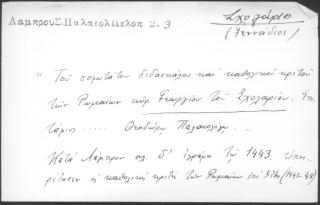 Λαμπρου Σ. Παλαιολ Πελοπ 2. 3
Σχολάριο
(Γεννάδιο)
"Τοῦ σοφωτάτου διδασκάλου καὶ καθολικοῦ κριτοῦ
τῶν Ῥωμαίων κῦρ Γεωργίου τοῦ Σχολαρίου. Ἐπι
τάφιος ..... Θεοδώρῳ Παλαιολόγῳ ..
Κατὰ Λάμπρον σελ. δ' ἐγράφη τῷ 1443. ὑπη-
ρέτησεν ὡς καθολικὸς κριτὴς τῶν Ῥωμαίων ἐπὶ 5 ἔτη (1443-48)